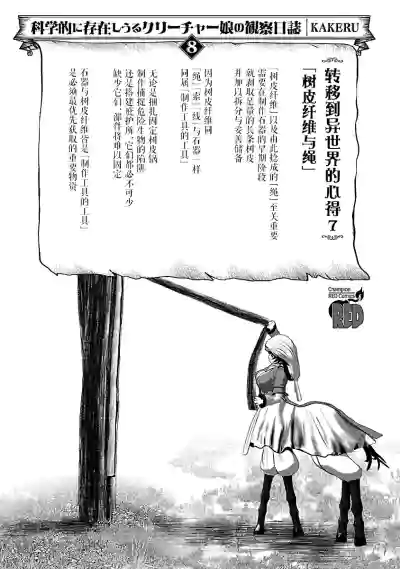 科学的に存在しうるクリーチャー娘の観察日誌 KAKERU
8
转移到异世界的心得7
「树皮纤维与绳」
「树皮纤维」以及由此捻成的「绳」至关重要
需要在制作石器的早期阶段
就剥取足量的长条树皮
并加以拆分与妥善储备
因为树皮纤维同
「绳」「索」「线」与石器一样
同属「制作工具的工具」
无论是捆扎固定树皮锅
制作捕捉危险生物的陷阱
还是搭建庇护所，它们都必不可少
缺少它们，部件将难以固定
石器与树皮纤维皆是「制作工具的工具」
是必须最优先获取的重要物资
Champion
RED Comics
RED